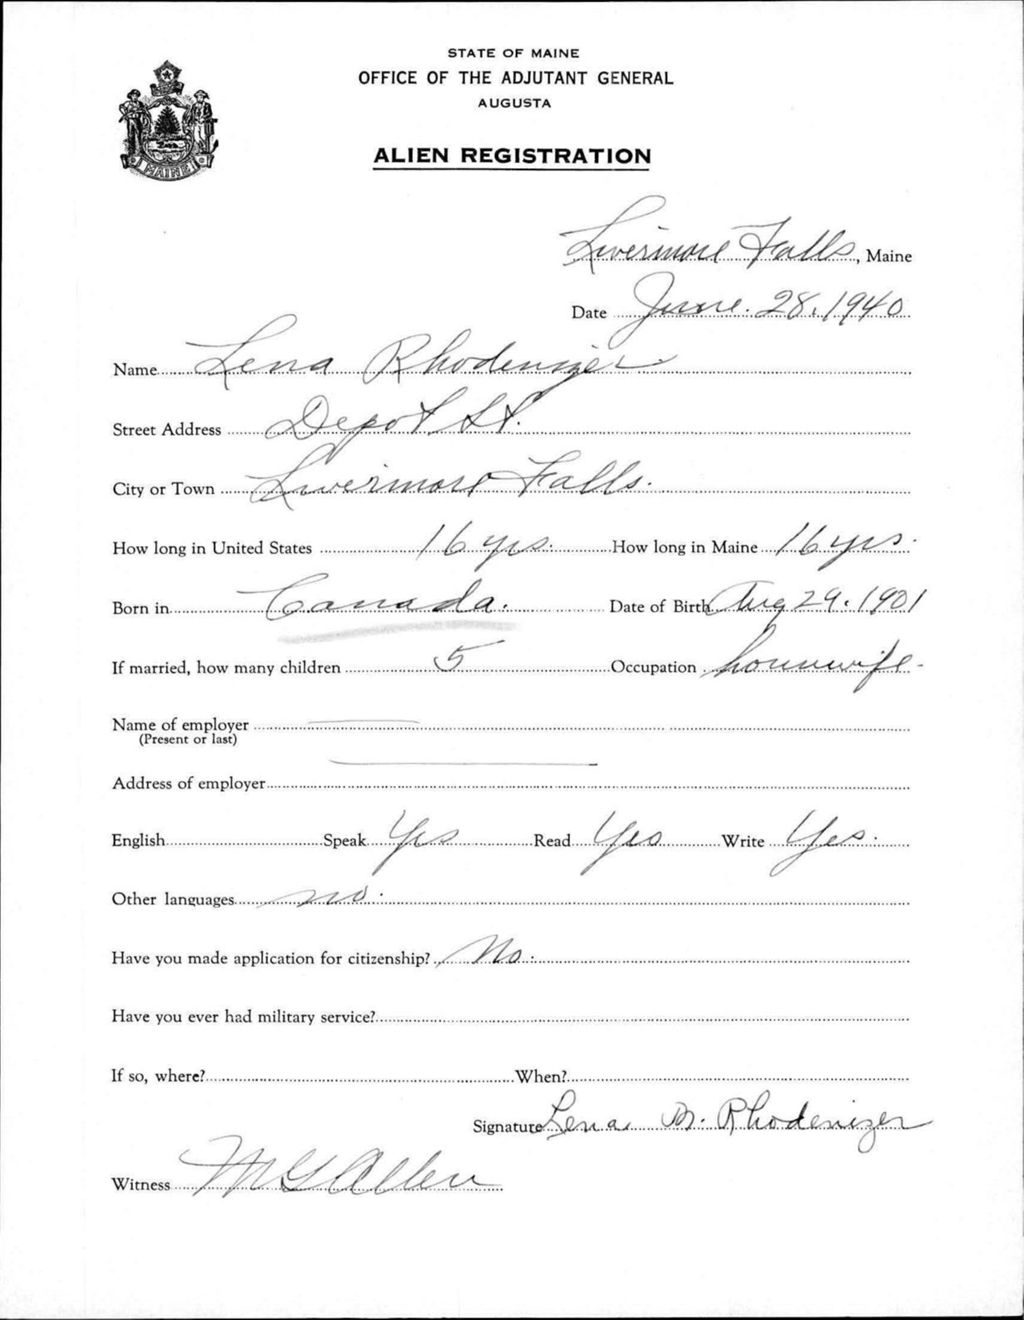 STATE OF MAINE
OFFICE OF THE ADJUTANT GENERAL
AUGUSTA
ALIEN REGISTRATION
MAINE
Livermore Falls, Maine
Date June. 28. 1940
Name Lena Rhodenizer
Street Address Depot St.
City or Town Livermore Falls.
How long in United States 16 yrs. How long in Maine 16 yrs.
Born in Canada. Date of Birth Aug 29. 1901
If married, how many children 5 Occupation housewife.
Name of employer
(Present or last)
Address of employer
English Speak Yes Read Yes Write Yes.
Other languages no.
Have you made application for citizenship? No.
Have you ever had military service?
If so, where? When?
Signature Lena M. Rhodenizer
Witness M G Allen